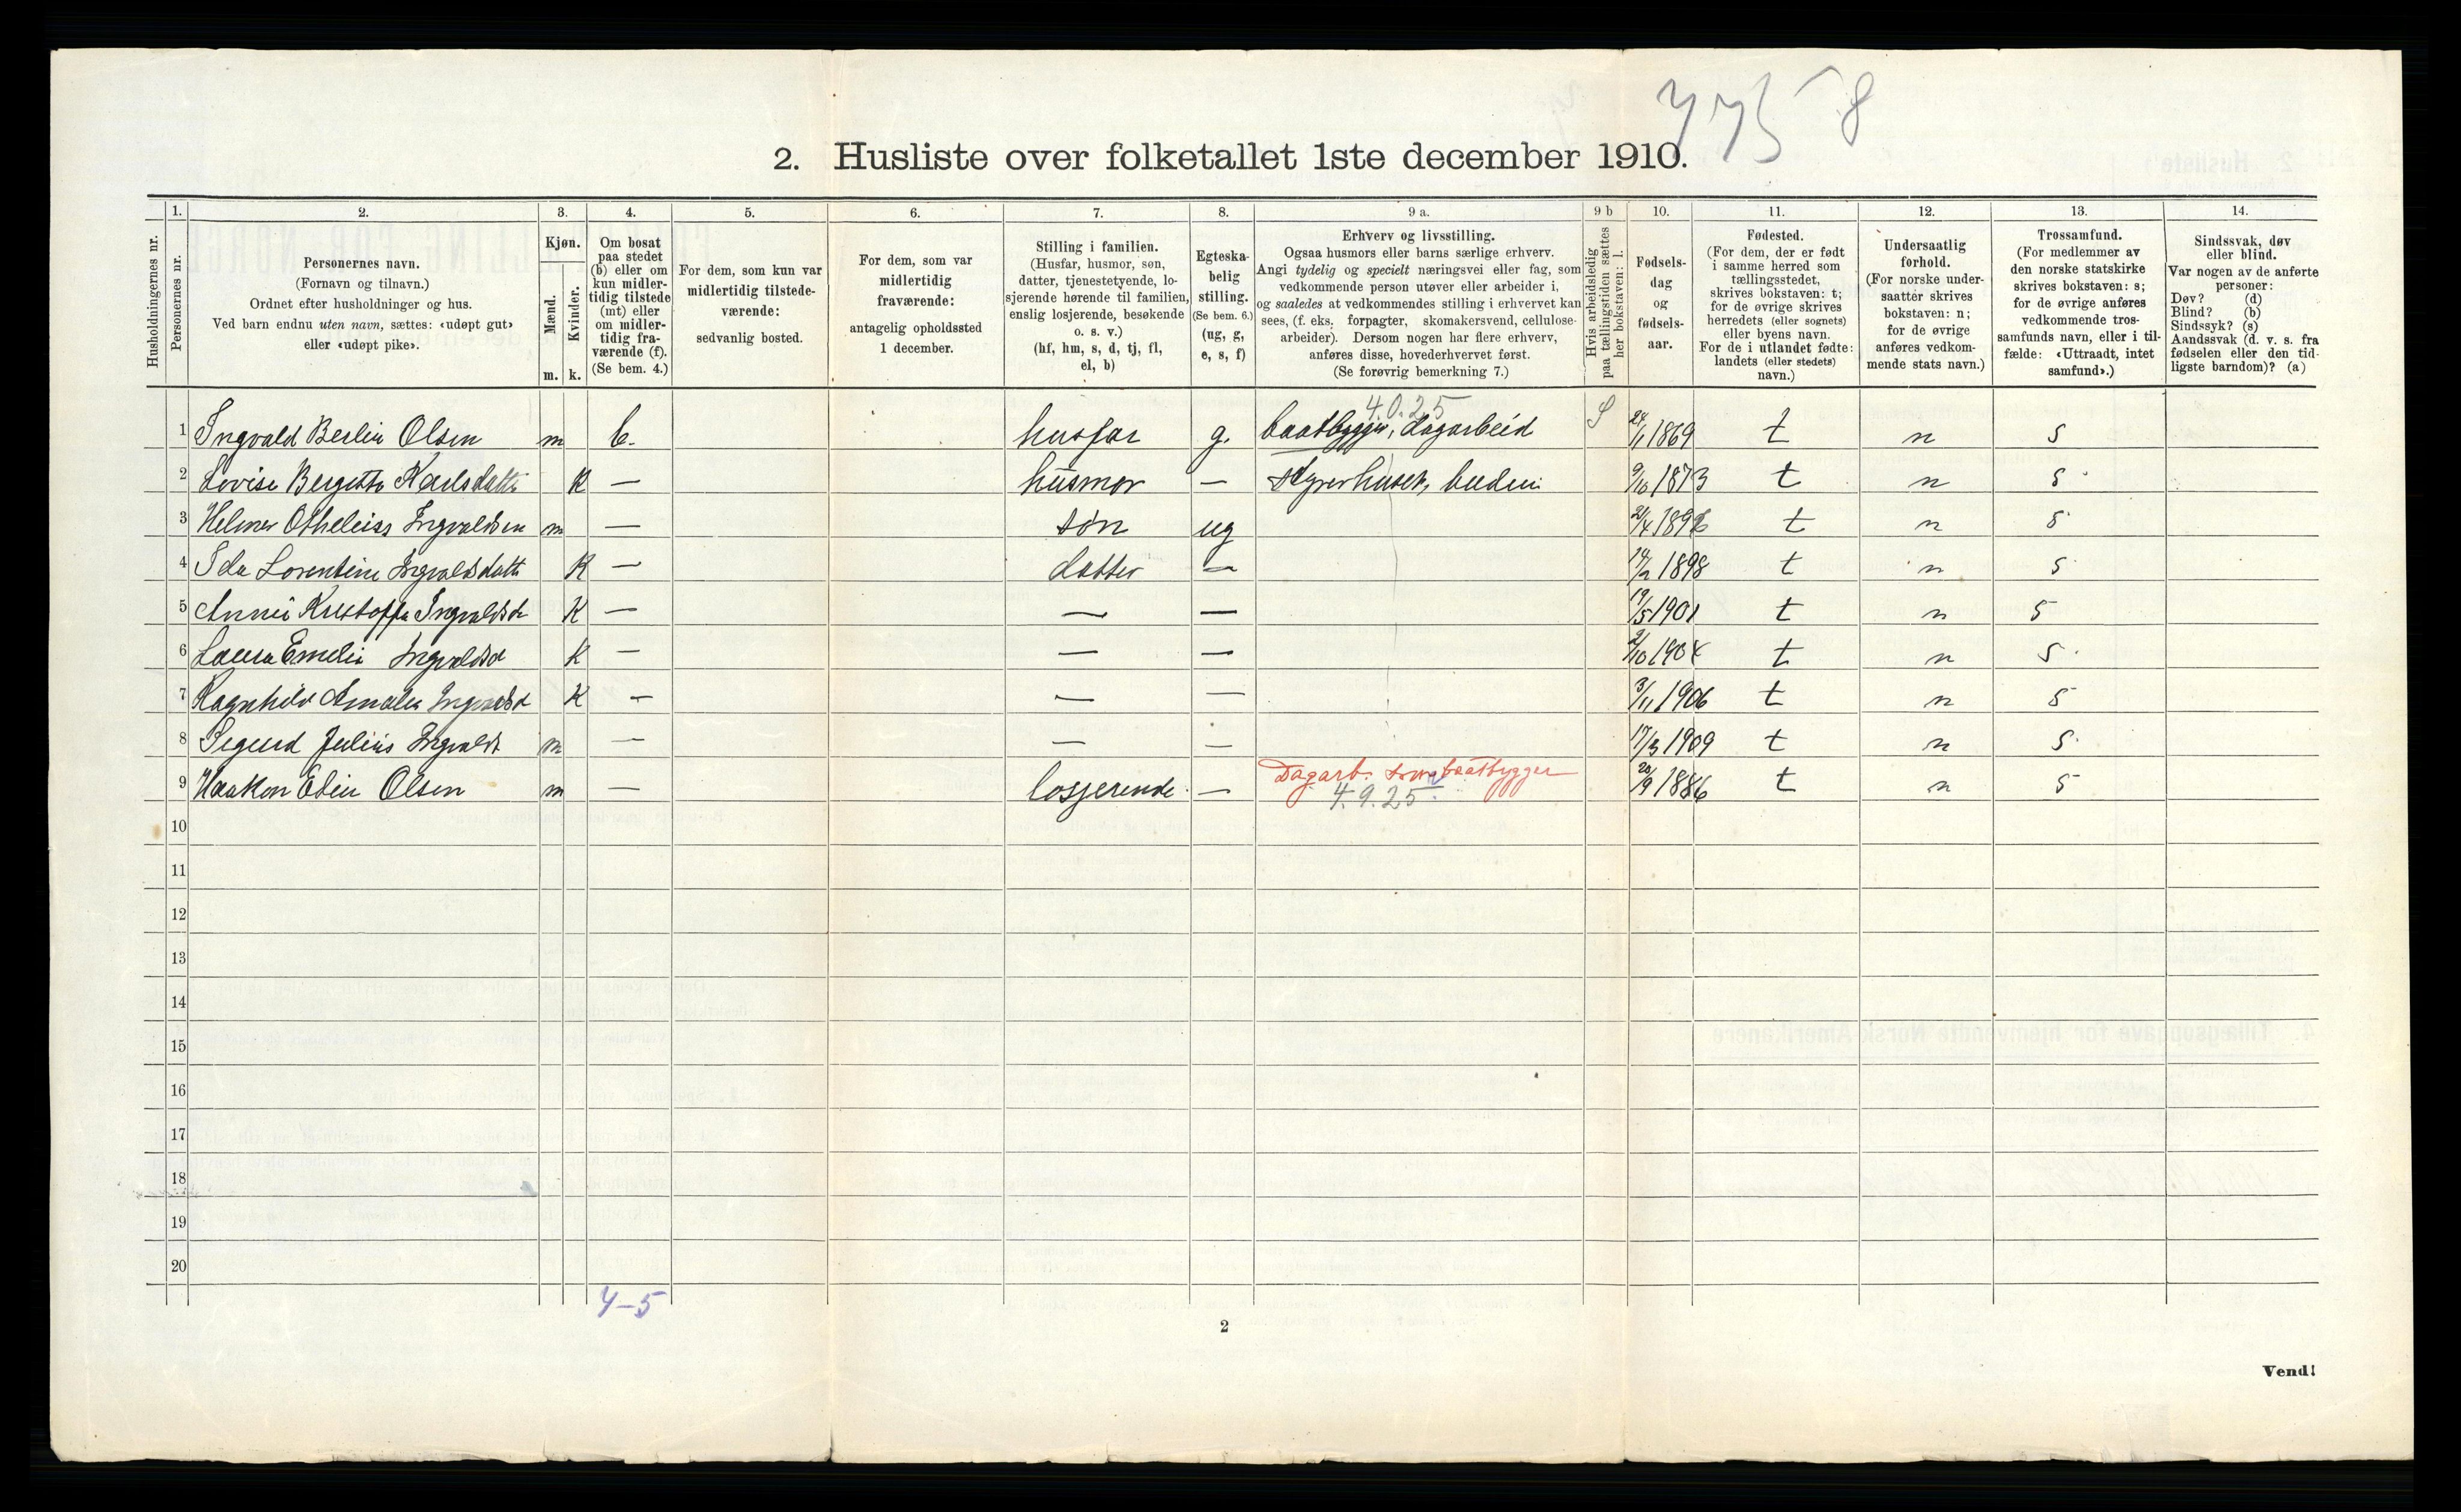 775 8
2. Husliste over folketallet 1ste december 1910.
Husholdningernes nr.
1. Personernes nr.
2. Personernes navn.
(Fornavn og tilnavn.)
Ordnet efter husholdninger og hus.
Ved barn endnu uten navn, sættes: «udøpt gut»
eller «udøpt pike».
3. Kjøn.
Mænd. m.
Kvinder. k.
4. Om bosat
paa stedet
(b) eller om
kun midler-
tidig tilstede
(mt) eller
om midler-
tidig fra-
værende (f).
(Se bem. 4.)
5. For dem, som kun var
midlertidig tilstede-
værende:
sedvanlig bosted.
6. For dem, som var
midlertidig
fraværende:
antagelig opholdssted
1 december.
7. Stilling i familien.
(Husfar, husmor, søn,
datter, tjenestetyende, lo-
sjerende hørende til familien,
enslig losjerende, besøkende
o. s. v.)
(hf, hm, s, d, tj, fl,
el, b)
8. Egteska-
belig
stilling.
(Se bem. 6.)
(ug, g,
e, s, f)
9 a. Erhverv og livsstilling.
Ogsaa husmors eller barns særlige erhverv.
Angi tydelig og specielt næringsvei eller fag, som
vedkommende person utøver eller arbeider i,
og saaledes at vedkommendes stilling i erhvervet kan
sees, (f. eks. forpagter, skomakersvend, cellulose-
arbeider). Dersom nogen har flere erhverv,
anføres disse, hovederhvervet først.
(Se forøvrig bemerkning 7.)
9 b Hvis arbeidsledig
paa tællingstiden sættes
her bokstaven: l.
10. Fødsels-
dag
og
fødsels-
aar.
11. Fødested.
(For dem, der er født
i samme herred som
tællingsstedet,
skrives bokstaven: t;
for de øvrige skrives
herredets (eller sognets)
eller byens navn.
For de i utlandet fødte:
landets (eller stedets)
navn.)
12. Undersaatlig
forhold.
(For norske under-
saatter skrives
bokstaven: n;
for de øvrige
anføres vedkom-
mende stats navn.)
13. Trossamfund.
(For medlemmer av
den norske statskirke
skrives bokstaven: s;
for de øvrige anføres
vedkommende tros-
samfunds navn, eller i til-
fælde: «Uttraadt, intet
samfund».)
14. Sindssvak, døv
eller blind.
Var nogen av de anførte
personer:
Døv? (d)
Blind? (b)
Sindssyk? (s)
Aandssvak (d. v. s. fra
fødselen eller den tid-
ligste barndom)? (a)
4.0.25
1 Ingvald Berlin Olsen m b. husfar g. baatbygger, dagarbeid S 24/1 1869 t n s
2 Lovise Bergitte Karlsdatte K — husmor — styrer huset, budeie 9/10 1873 t n s
3 Helmer Ingvaldsen m — søn ug 2/4 t n s
4 Ida Lorentine Ingvaldsdatte K — datter — 14/2 1898 t n s
5 Anna Kristoffa Ingvaldsd K — — — 19/5 1901 t n s
6 Laura Emelie Ingvaldsd K — — — 2/10 1904 t n s
7 Ragnhild Amalia Ingvaldsd K — — — 3/11 1906 t n s
8 Sigurd Julius Ingvalds m — — — 17/3 1909 t n s
9 Haakon Edin Olsen m — losjerende — Dagarb. som baatbygger 20/9 1886 t n s
4.9.25
10
11
12
13
14
15
16
17
18
19
20
4-5
2
Vend!